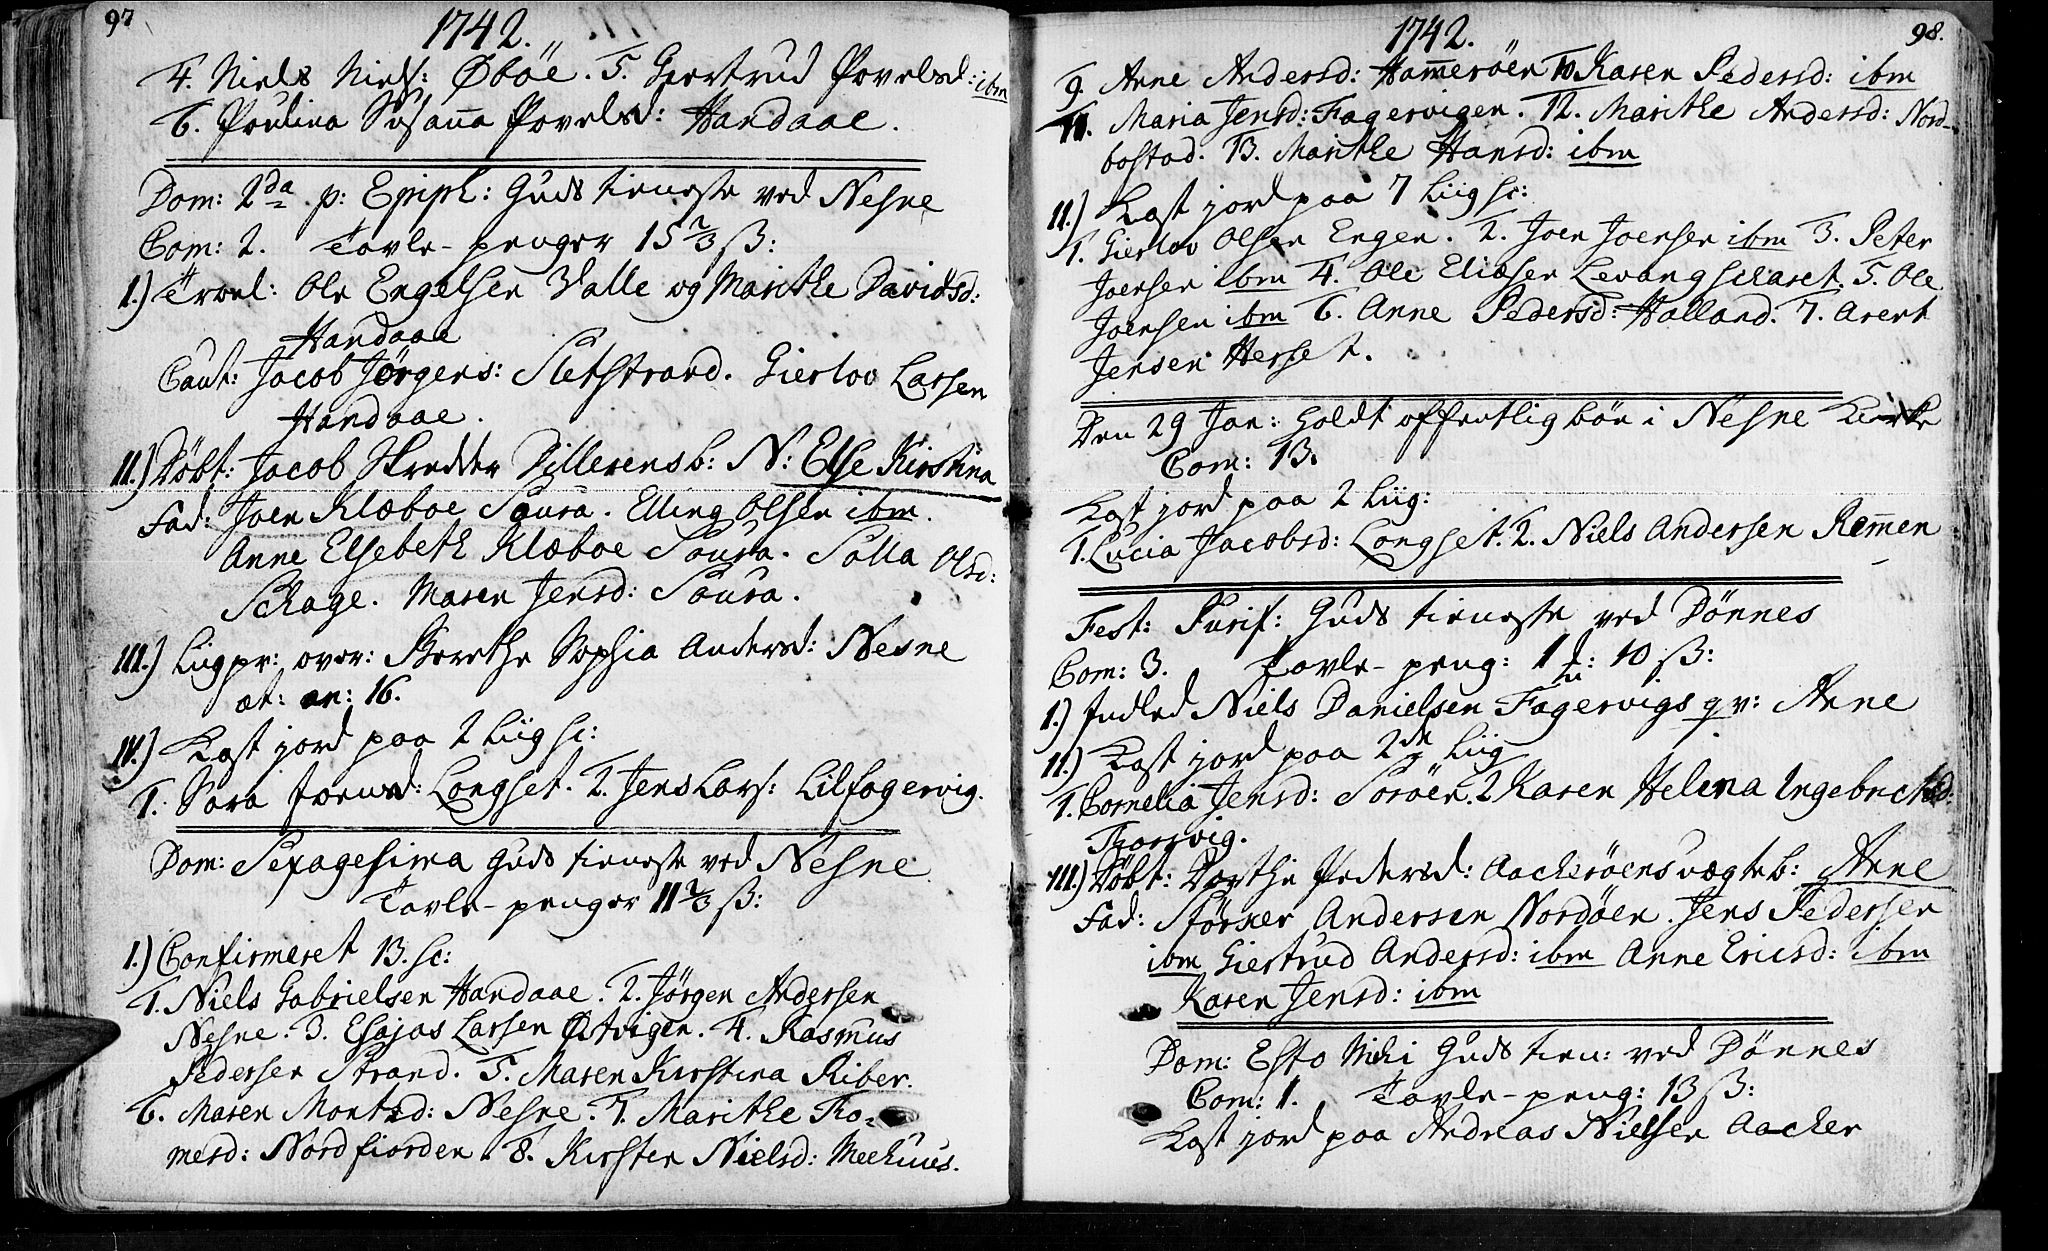 97
1742.
4. Niels Niels: Øböe. 5. Giertrud Povelsd: ibm
6. Paulina Susaña Povelsd: Handaae.
Dom: 2da p: Epiph: Guds tieneste ved Nesne
Com: 2. Tavle-penger 15 2/3 ß:
1.) Trol: Ole Engelsen Valle og Marithe Davidsd:
Handaae
Caut: Jacob Jörgens: Sletstrand. Gierlov Larsen
Handaae.
11.) Döbt: Jacob Skredder Dillerens b: N: Else Kirstina
Fad: Joen Klæboe Soura. Elling Olsen ibm.
Anne Elsebeth Klæboe Soura. Salla Olsd:
Schage. Maren Jensd: Soura.
111.) Liigpr: over: Dorethe Sophia Andersd: Nesne
æt: an: 16.
1V.) Kast jord paa 2 Liig sc:
1. Sara Joensd: Longset. 2. Jens Lars: Lilfagervig.
Dom: Sexagesima Guds tieneste ved Nesne
Tavle-penger 11 2/3 ß:
1.) Confirmeret 13. sc:
1. Niels Gabrielsen Handaae. 2. Jörgen Andersen
Nesne. 3. Esajas Larsen Østvigen. 4. Rasmus
Pedersen Strand. 5. Maren Kirstina Riber.
6. Maren Montsd: Nesne. 7. Marithe To-
mesd: Nordfiorden. 8. Kirsten Nielsd: Meehuus.
98.
1742.
9. Anne Andersd: Ham̄eröen 10 Karen Pedersd: ibm
11. Maria Jensd: Fagervigen. 12. Marithe Andersd: Nord-
bostad. 13. Marithe Hansd: ibm
11.) Kast jord paa 7 Liig sc:
1. Gierlov Olsen Engen. 2. Joen Joensen ibm 3. Peter
Joensen ibm 4. Ole Eliæsen Levang 5. Ole
Joensen ibm 6. Anne Pedersd: Halland. 7. Arent
Jensen Herset.
Den 29 Jan: holdt offentlig bön i Nesne Kirke
Com: 13.
Kast jord paa 2 Liig:
1. Lucia Jacobsd: Longset. 2. Niels Andersen Rem̄en
Fest: Purif: Guds tieneste ved Dönnes
Com: 3. Tavle-peng: 1 10 ß:
1.) Indled Niels Danielsen Fagervigs qv: Anne
11.) Kast jord paa 2de Liig
1. Cornelia Jensd: Soröen. 2 Karen Helena Ingebrictsd:
Thorsvig.
111.) Döbt: Dorthe Pedersd: Aacheröens uægte b: Anne
Fad: Störker Andersen Nordöen. Jens Pedersen
ibm Giertrud Andersd: ibm Anne Ericsd: ibm
Karen Jensd: ibm
Dom: Esto Mihi Guds tien: ved Dönnes
Com: 1. Tavle-peng: 13 ß:
Kast jord paa Andreas Nielsen Aacker